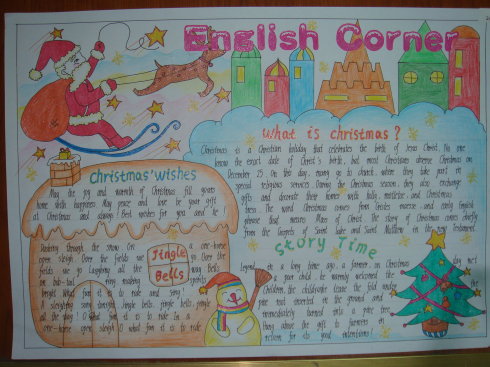 English Corner
What is christmas?
Christmas is a Christian holiday that celebrates the birth of Jesus Christ. No one
know the exact date of Christ's birth, but most Christians observe Christmas on
December 25. On this day, many go to church where they take part in
special religious services. During the Christmas season, they also exchange
gifts and decorate their homes with holly, mistletoe and Christmas
trees. The word Christmas comes from Cristes maesse, and early English
phrase that means Mass of Christ. The story of Christmas comes chiefly
from the Gospels of Saint Luke and Saint Matthew in the New Testament.
christmas' wishes
May the joy and warmth of Christmas fill yours
home with happiness. May peace and love be your gift
at Christmas and always! Best wishes for you and me!
Jingle Bells
Dashing through the snow On a one-horse
open sleigh Oore the fields we go
fields we go Laughing all the way Bells
on bob-tail ring making spirits
bright What fun it is to ride and sing
A sleighing song tonight Jingle bells, jingle bells, jingle
all the way! O what fun it is to ride In a
one-horse open sleigh O what fun it is to ride
Story Time
Legend, in a long time ago, a farmer in Christmas day met
a poor child, warmly welcomed the
Children, the child leave the fold under
pine root inserted in the ground and
immediately turned into a pine tree,
they above the gift to farmers in
return for its good intentions!